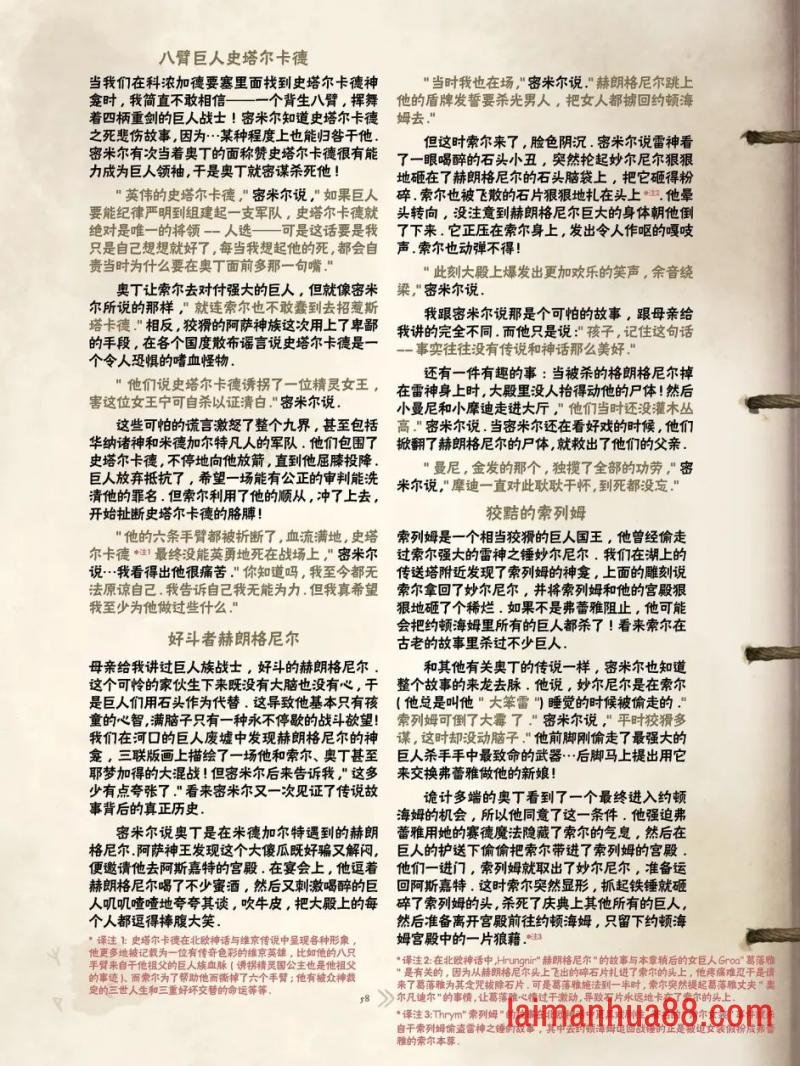 八臂巨人史塔尔卡德
当我们在科浓加德要塞里面找到史塔尔卡德神
龛时，我简直不敢相信——一个背生八臂，挥舞
着四柄重剑的巨人战士！密米尔知道史塔尔卡德
之死悲伤故事，因为…某种程度上也能归咎于他.
密米尔有次当着奥丁的面称赞史塔尔卡德很有能
力成为巨人领袖，于是奥丁就密谋杀死他！
"英伟的史塔尔卡德，"密米尔说，"如果巨人
要能纪律严明到组建起一支军队，史塔尔卡德就
绝对是唯一的将领 —— 人选——可是这话要是我
只是自己想想就好了，每当我想起他的死，都会自
责当时为什么要在奥丁面前多那一句嘴."
奥丁让索尔去对付强大的巨人，但就像密米
尔所说的那样，"就连索尔也不敢蠢到去招惹斯
塔卡德."相反，狡猾的阿萨神族这次用上了卑鄙
的手段，在各个国度散布谣言说史塔尔卡德是一
个令人恐惧的嗜血怪物.
"他们说史塔尔卡德诱拐了一位精灵女王，
害这位女王宁可自杀以证清白."密米尔说.
这些可怕的谎言激怒了整个九界，甚至包括
华纳诸神和米德加尔特凡人的军队. 他们包围了
史塔尔卡德，不停地向他放箭，直到他屈膝投降.
巨人放弃抵抗了，希望一场能有公正的审判能洗
清他的罪名. 但索尔利用了他的顺从，冲了上去，
开始扯断史塔尔卡德的胳膊！
"他的六条手臂都被折断了，血流满地，史塔
尔卡德 *注1 最终没能英勇地死在战场上，"密米尔
说…我看得出他很痛苦."你知道吗，我至今都无
法原谅自己. 我告诉自己我无能为力. 但我真希望
我至少为他做过些什么."
好斗者赫朗格尼尔
母亲给我讲过巨人族战士，好斗的赫朗格尼尔.
这个可怜的家伙生下来既没有大脑也没有心，于
是巨人们用石头作为代替. 这导致他基本只有孩
童的心智，满脑子只有一种永不停歇的战斗欲望！
我们在河口的巨人废墟中发现赫朗格尼尔的神
龛，三联版画上描绘了一场他和索尔、奥丁甚至
耶梦加得的大混战！但密米尔后来告诉我，"这多
少有点夸张了."看来密米尔又一次见证了传说故
事背后的真正历史.
密米尔说奥丁是在米德加尔特遇到的赫朗
格尼尔. 阿萨神王发现这个大傻瓜既好骗又解闷，
便邀请他去阿斯嘉特的宫殿. 在宴会上，他逗着
赫朗格尼尔喝了不少蜜酒，然后又刺激喝醉的巨
人叽叽喳喳地夸夸其谈，吹牛皮，把大殿上的每
个人都逗得捧腹大笑.
* 译注 1: 史塔尔卡德在北欧神话与维京传说中呈现各种形象，
他更多地被记载为一位有传奇色彩的维京英雄，比如他的八只
手臂来自于他祖父的巨人族血脉（诱拐精灵国公主也是他祖父
的事迹）. 而索尔为了帮助他而撕掉了六个手臂；他有被众神裁
定的三世人生和三重好坏交替的命运等等.
"当时我也在场，"密米尔说."赫朗格尼尔跳上
他的盾牌发誓要杀光男人，把女人都掳回约顿海
姆去."
但这时索尔来了，脸色阴沉. 密米尔说雷神看
了一眼喝醉的石头小丑，突然抡起妙尔尼尔狠狠
地砸在了赫朗格尼尔的石头脑袋上，把它砸得粉
碎. 索尔也被飞散的石片狠狠地扎在头上 *注2. 他晕
头转向，没注意到赫朗格尼尔巨大的身体朝他倒
了下来. 它正压在索尔身上，发出令人作呕的嘎吱
声. 索尔也动弹不得！
"此刻大殿上爆发出更加欢乐的笑声，余音绕
梁，"密米尔说.
我跟密米尔说那是个可怕的故事，跟母亲给
我讲的完全不同. 而他只是说："孩子，记住这句话
—— 事实往往没有传说和神话那么美好."
还有一件有趣的事：当被杀的格朗格尼尔掉
在雷神身上时，大殿里没人抬得动他的尸体！然后
小曼尼和小摩迪走进大厅，"他们当时还没灌木丛
高."密米尔说. 当密米尔还在看好戏的时候，他们
掀翻了赫朗格尼尔的尸体，就救出了他们的父亲.
"曼尼，金发的那个，独揽了全部的功劳，"密
米尔说，"摩迪一直对此耿耿于怀，到死都没忘."
狡黠的索列姆
索列姆是一个相当狡猾的巨人国王，他曾经偷走
过索尔强大的雷神之锤妙尔尼尔. 我们在湖上的
传送塔附近发现了索列姆的神龛，上面的雕刻说
索尔拿回了妙尔尼尔，并将索列姆和他的宫殿狠
狠地砸了个稀烂. 如果不是弗蕾雅阻止，他可能
会把约顿海姆里所有的巨人都杀了！看来索尔在
古老的故事里杀过不少巨人.
和其他有关奥丁的传说一样，密米尔也知道
整个故事的来龙去脉. 他说，妙尔尼尔是在索尔
(他总是叫他 "大笨雷") 睡觉的时候被偷走的."
索列姆可倒了大霉 了."密米尔说，"平时狡猾多
谋，这时却没动脑子."他前脚刚偷走了最强大的
巨人杀手手中最致命的武器…后脚马上提出用它
来交换弗蕾雅做他的新娘！
诡计多端的奥丁看到了一个最终进入约顿
海姆的机会，所以他同意了这一条件. 他强迫弗
蕾雅用她的赛德魔法隐藏了索尔的气息，然后在
巨人的护送下偷偷把索尔带进了索列姆的宫殿.
他们一进门，索列姆就取出了妙尔尼尔，准备运
回阿斯嘉特. 这时索尔突然显形，抓起铁锤就砸
碎了索列姆的头，杀死了庆典上其他所有的巨人，
然后准备离开宫殿前往约顿海姆，只留下约顿海
姆宫殿中的一片狼藉. *注3
*译注 2: 在北欧神话中，Hrungnir"赫朗格尼尔"的故事与本章稍后的女巨人Groa"葛落雅
"是有关的，因为从赫朗格尼尔头上飞出的碎石片扎进了索尔的头，他疼痛难忍于是请
来了葛落雅为其念咒拔除石片. 可是葛落雅施法到一半时，索尔突然提起葛落雅丈夫"奥
尔凡迪尔"的事情，让葛落雅心情过于激动，导致石片永远地卡在了索尔的头上.
*译注 3:Thrym"索列姆"
自于索列姆偷盗雷神之锤的故事，其中去约顿海姆追回战锤的正是被迫女装假扮成弗蕾
雅的索尔本尊.
58
laimanhua88.com